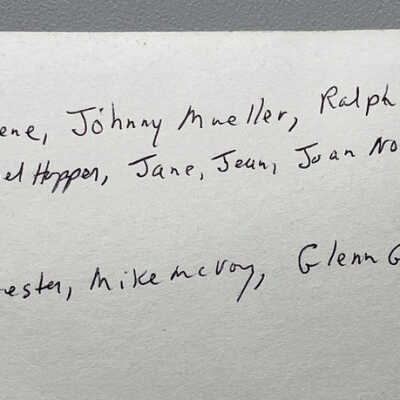 ene, Johnny Mueller, Ralph
el Hopper, Jane, Jean, Joan No
ester, Mike McVoy, Glenn G